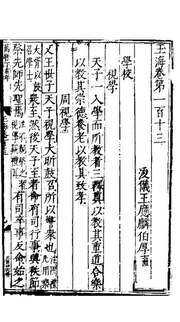 玉海卷第一百十三
浚儀王應麟伯厚甫
學校
視學
天子一入學而所教者三釋奠以教其重道合樂
以教其崇德養老以教其致孝
周視學
文王世子天子視學大昕鼓徵所以警衆也
衆至然後天子至乃命有司行事興秩節
祭先師先聖焉有司卒事反命始之